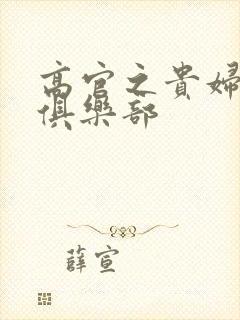 高官之貴婦
俱樂部
薛宣